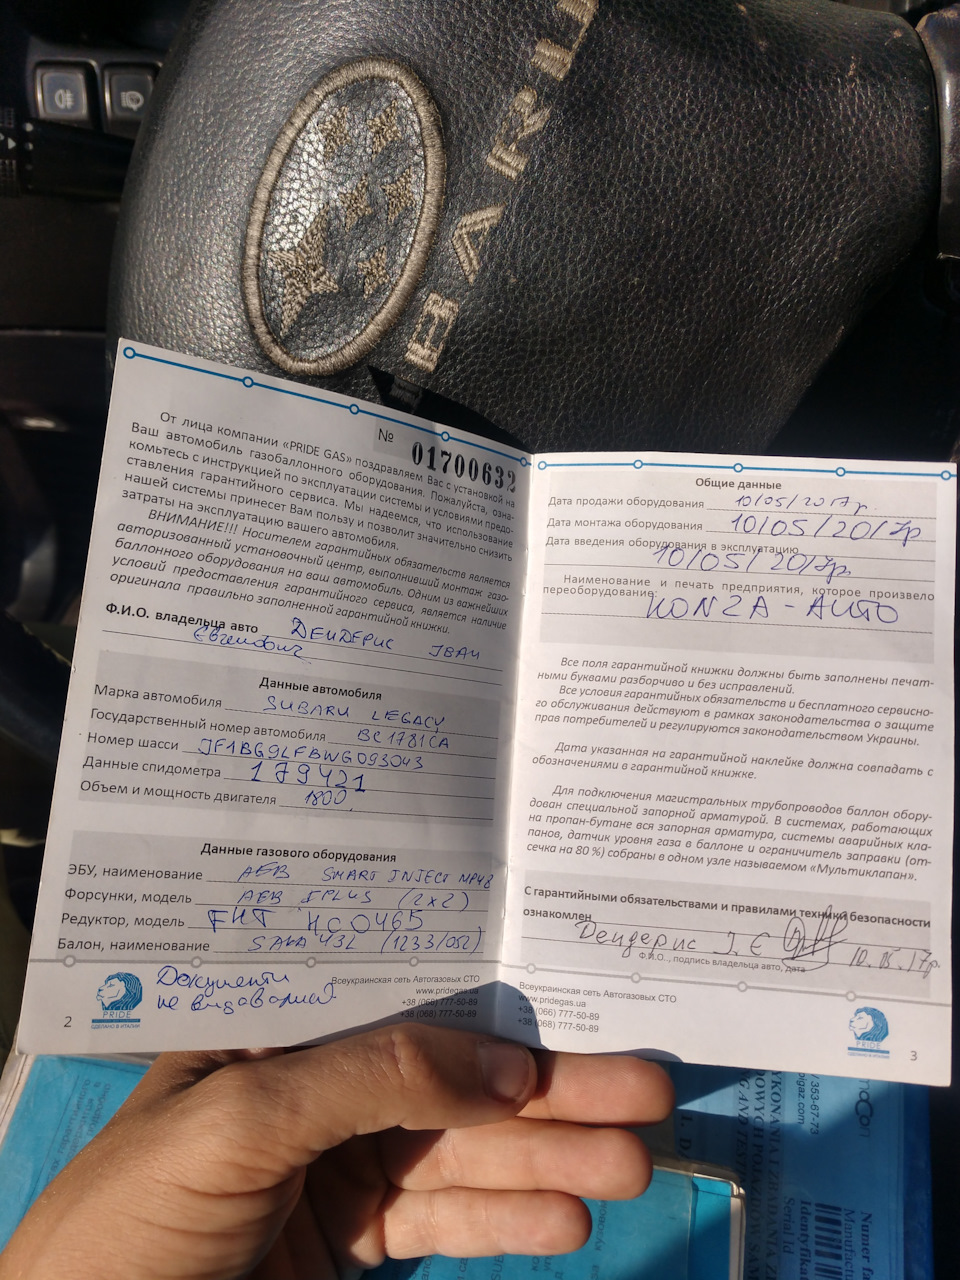 BARU
№ 01700632
От лица компании «PRIDE GAS» поздравляем Вас с установкой на
Ваш автомобиль газобаллонного оборудования. Пожалуйста, озна-
комьтесь с инструкцией по эксплуатации системы и условиями предо-
ставления гарантийного сервиса. Мы надеемся, что использование
нашей системы принесет Вам пользу и позволит значительно снизить
затраты на эксплуатацию вашего автомобиля.
ВНИМАНИЕ!!! Носителем гарантийных обязательств является
авторизованный установочный центр, выполнивший монтаж газо-
баллонного оборудования на ваш автомобиль. Одним из важнейших
условий предоставления гарантийного сервиса, является наличие
оригинала правильно заполненной гарантийной книжки.
Ф.И.О. владельца авто ДЕНДЕРИС ІВАН
Євгенович
Данные автомобиля
Марка автомобиля SUBARU LEGACY
Государственный номер автомобиля BC1781CA
Номер шасси JF1BG9LFBWG093043
Данные спидометра 179421
Объем и мощность двигателя 1800
Данные газового оборудования
ЭБУ, наименование AEB SMART INJECT MP48
Форсунки, модель AEB IPLUS (2x2)
Редуктор, модель FHT HC0465
Балон, наименование SAKA 43L (1233/052)
Документи
не видавались.
Всеукраинская сеть Автогазовых СТО
www.pridegas.ua
+38 (068) 777-50-89
+38 (066) 777-50-89
PRIDE
СДЕЛАНО В ИТАЛИИ
2
Общие данные
Дата продажи оборудования 10/05/2017р.
Дата монтажа оборудования 10/05/2017р
Дата введения оборудования в эксплуатацию
10/05/2017р.
Наименование и печать предприятия, которое произвело
переоборудование: KONZA-AUTO
Все поля гарантийной книжки должны быть заполнены печат-
ными буквами разборчиво и без исправлений.
Все условия гарантийных обязательств и бесплатного сервисно-
го обслуживания действуют в рамках законодательства о защите
прав потребителей и регулируются законодательством Украины.
Дата указанная на гарантийной наклейке должна совпадать с
обозначениями в гарантийной книжке.
Для подключения магистральных трубопроводов баллон обору-
дован специальной запорной арматурой. В системах, работающих
на пропан-бутане вся запорная арматура, системы аварийных кла-
панов, датчик уровня газа в баллоне и ограничитель заправки (от-
сечка на 80 %) собраны в одном узле называемом «Мультиклапан».
С гарантийными обязательствами и правилами техники безопасности
ознакомлен
Дендерис І. Є 10.05.17р.
Ф.И.О., подпись владельца авто, дата
Всеукраинская сеть Автогазовых СТО
www.pridegas.ua
+38 (068) 777-50-89
+38 (066) 777-50-89
PRIDE
СДЕЛАНО В ИТАЛИИ
3
353-67-73
Serial Id